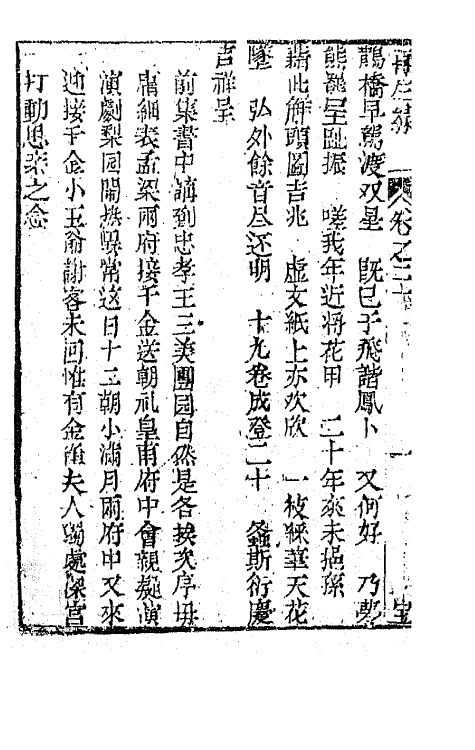 再生緣 卷之二十 一 宝
鵲橋早駕渡双星 既已于飛諧鳳卜 又何好 乃夢
熊羆呈叵振 嗟我年近將花甲 二十年來未抱孫
藉此解頭圖吉兆 虛文紙上亦欢欣 一枝綵華天花
墜 弘外餘音尽还明 十九卷成登二十 螽斯衍慶
吉祥呈
前集書中講到忠孝王三美團园自然是各挨次序毋
庸細表孟梁兩府接千金送朝礼皇甫府中會親疑演
演劇梨园閙熱異常这日十三朝小滿月兩府中又來
迎接千金小王爺謝客未回惟有金雀夫人獨處深宮
打動思亲之念